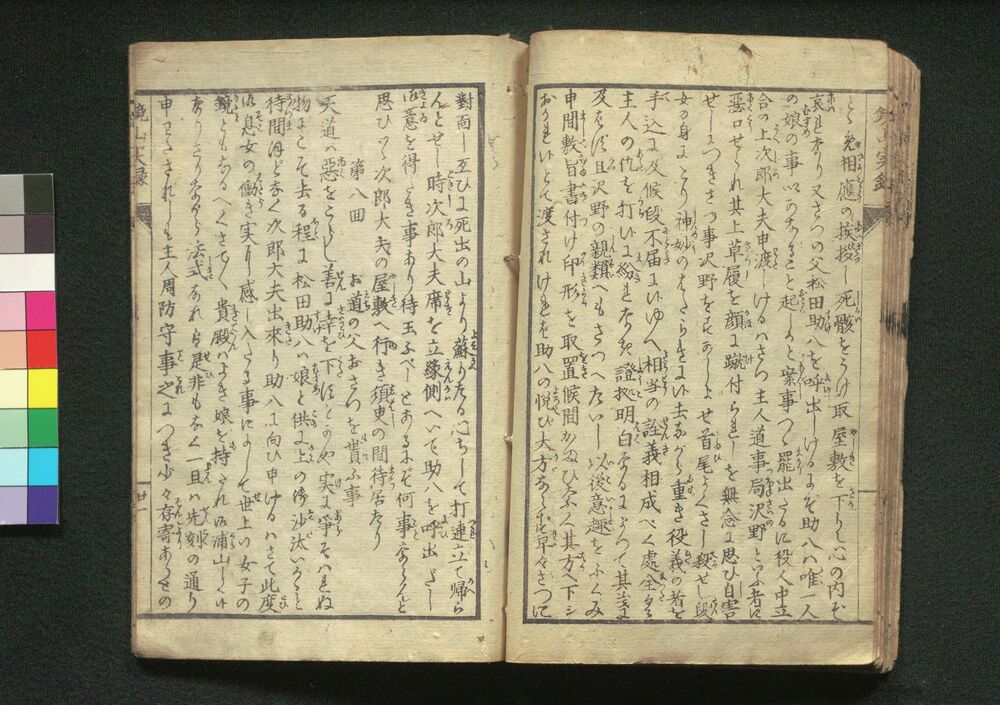 相應の挨拶し死骸をうけ取屋敷を下りし心の内ぞ
哀れなり又さつの父松田助八を呼出しけるにぞ助八ハ唯一人
の娘の事いかなることと起しかと案事つゝ罷出たるに役人中立
合の上次郎大夫申渡しけるハさつ主人道事局沢野といふ者に
悪口せられ其上草履を顔に蹴付られしを無念に思ひ自害
せしにつきさつ事沢野を
女の身にとり神妙のはたらきにハ去ながら重き役義の者を
手込に及候段不届にハゆへ相当の詮義相成べく處全く
主人の仇を打ハに紛れなき證拠明白なるによつて其
及はず且沢野の親類へもさつへたいし以後意趣をふくみ
申間敷旨書付け印形を取置候間かなひなく其方へ下し
おかれハとて渡されけれは助八の悦び大方ならず早々さつに
對面し互ひに死出の山より蘇りたる心ちして打連立て帰ら
んとせし時次郎大夫席を立縁側へいで助八を呼出たし
意を得たき事あり待玉ふべしとあるにぞ何事ならんと
思ひつゝ次郎大夫の屋敷へ行き須更の間待居たり
第八回 お道の父おさつを貰ふ事
天道ハ惡をこらし善に幸を下すとかや実に争そハれぬ
物にこそ去る程に松田助八ハ娘と供に上の御沙汰いかゞと
待間ほどなく次郎大夫出來り助八に向ひ申けるハさて此度
御息女の働き実に感し入たる事にして世上の女子の
鏡ともなるべくさて〱貴殿ハよき娘を持され
ありさりながら法式なれハ是非もなく一旦ハ先刻の通り
申わたされしも主人周防守事之につき少々存寄あるとの
鏡山実録
廿一